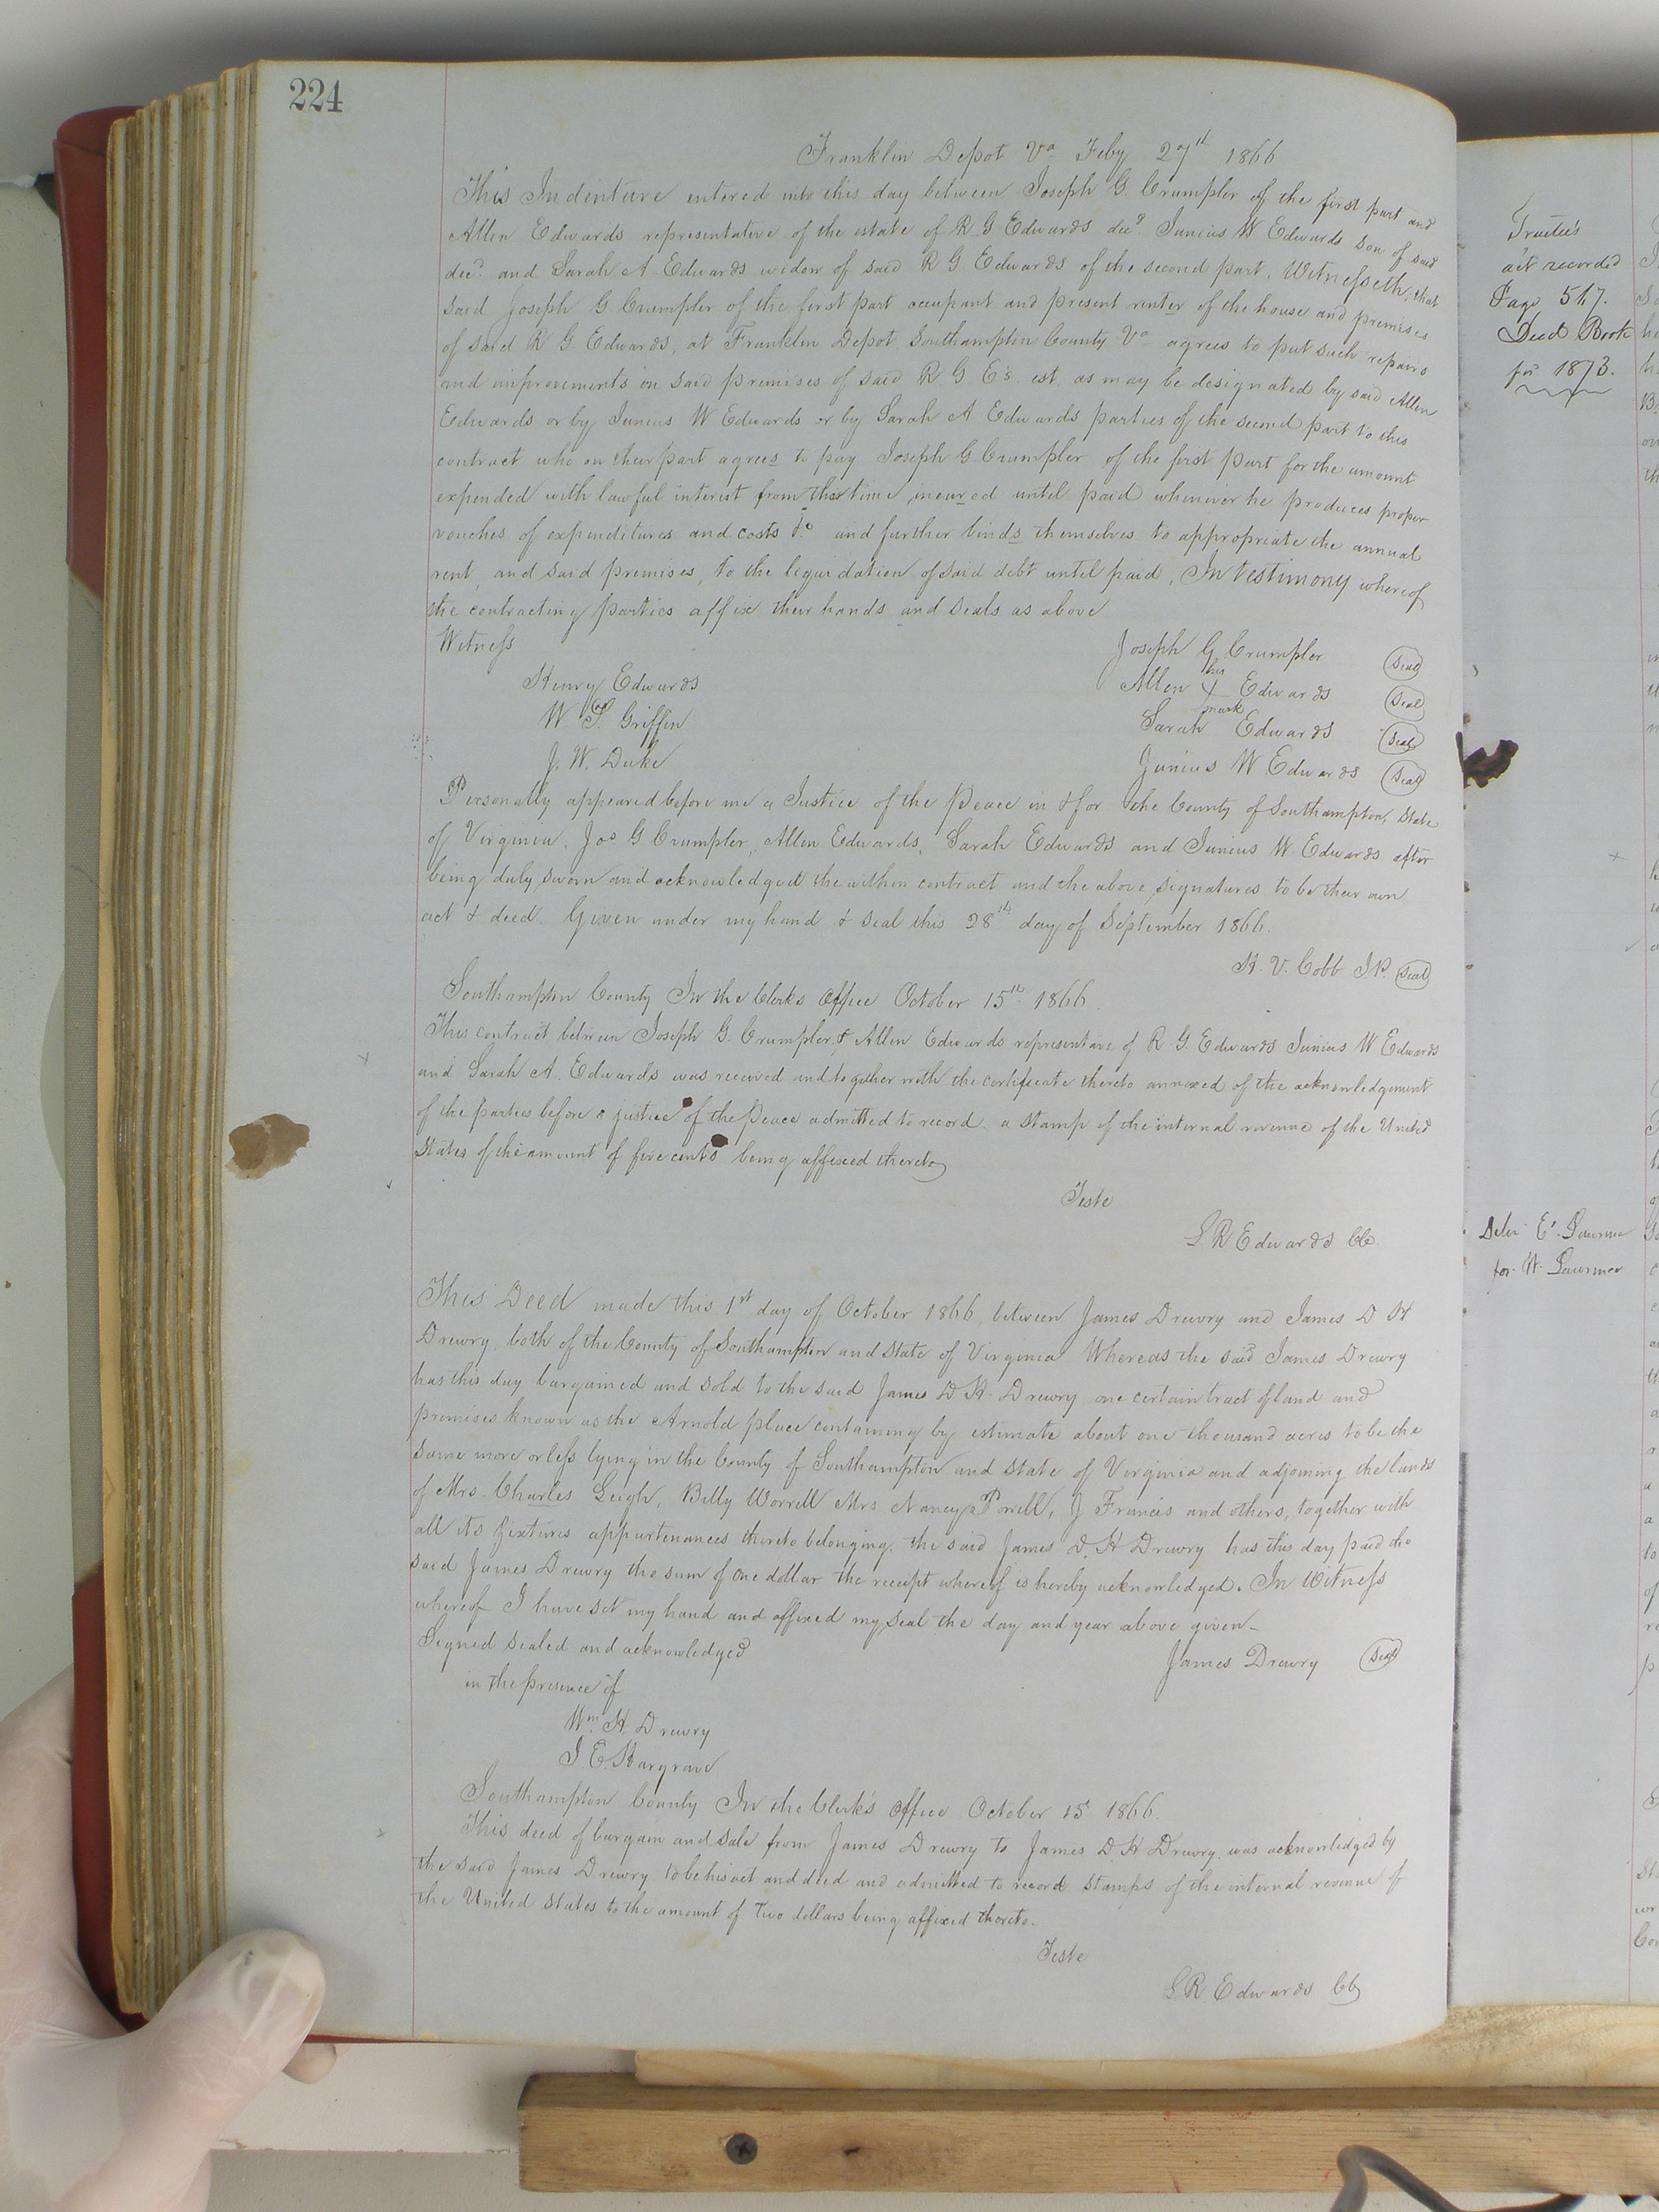 224
Franklin Depot Va Feby 27th 1866
This Indenture entered into this day between Joseph G. Crumpler of the first part and
Allen Edwards representative of the estate of R. G. Edwards decd. Junius W Edwards son of said
decd. and Sarah A Edwards widow of said R G Edwards of the second part. Witnesseth, that
said Joseph G Crumpler of the first part occupant and present renter of the house and premises
of said R G Edwards, at Franklin Depot Southampton County Va agrees to put such repairs
and improvements on said premises of said R G E's est. as may be designated by said Allen
Edwards or by Junius W Edwards or by Sarah A Edwards parties of the second part to this
contract who on their part agrees to pay Joseph G Crumpler of the first part for the amount
expended with lawful interest from this time incured until paid whenever he produces proper
vouches of expenditures and costs do and further binds themselves to appropriate the annual
rent, and said premises, to the liquidation of said debt until paid, In testimony whereof
the contracting parties affix their hands and seals as above
Witness
Joseph G Crumpler Seal
Henry Edwards
Allen his X mark Edwards Seal
W S. Griffin
Sarah Edwards Seal
J. W. Duke
Junius W Edwards Seal
Personally appeared before me a Justice of the Peace in & for the County of Southampton, State
of Virginia, Jos G Crumpler, Allen Edwards, Sarah Edwards and Junius W Edwards after
being duly sworn and acknowledged the within contract and the above signatures to be their own
act & deed. Given under my hand & seal this 28th day of September 1866.
H. V. Cobb J.P. Seal
Southampton County In the Clerks Office October 15th 1866.
This contract between Joseph G. Crumpler & Allen Edwards representave of R. G. Edwards Junius W Edwards
and Sarah A. Edwards was received and together with the certificate thereto annexed of the acknowledgement
of the parties before a justice of the Peace admitted to record. a stamp of the internal revenue of the United
States of the amount of five cents being affixed thereto
Teste
L R Edwards Clk.
This Deed made this 1st day of October 1866, between James Drewry and James D H
Drewry both of the County of Southampton and State of Virginia Whereas the said James Drewry
has this day bargained and sold to the said James D H. Drewry one certain tract of land and
premises known as the Arnold place containing by estimate about one thousand acres to be the
same more or less lying in the County of Southampton and State of Virginia and adjoining the lands
of Mrs. Charles Leigh, Billy Worrell Mrs Nancy Porrell, J Francis and others, together with
all its fixtures appurtenances thereto belonging, the said James D. H Drewry has this day paid the
said James Drewry the sum of one dollar the receipt whereof is hereby acknowledged. In Witness
whereof I have set my hand and affixed my seal the day and year above given-
Signed sealed and acknowledged
James Drewry Seal
in the presence of
Wm. H. Drewry
J. E. Hargrave
Southampton County In the Clerk's Office October 15 1866.
This deed of bargain and sale from James Drewry to James D. H Drewry, was acknowledged by
the said James Drewry to be his act and deed and admitted to record stamps of the internal revenue of
the United States to the amount of Two dollars being affixed thereto.
Teste
L R Edwards Clk
Trustees
act recorded
Page 517.
Deed Book
for 1873.